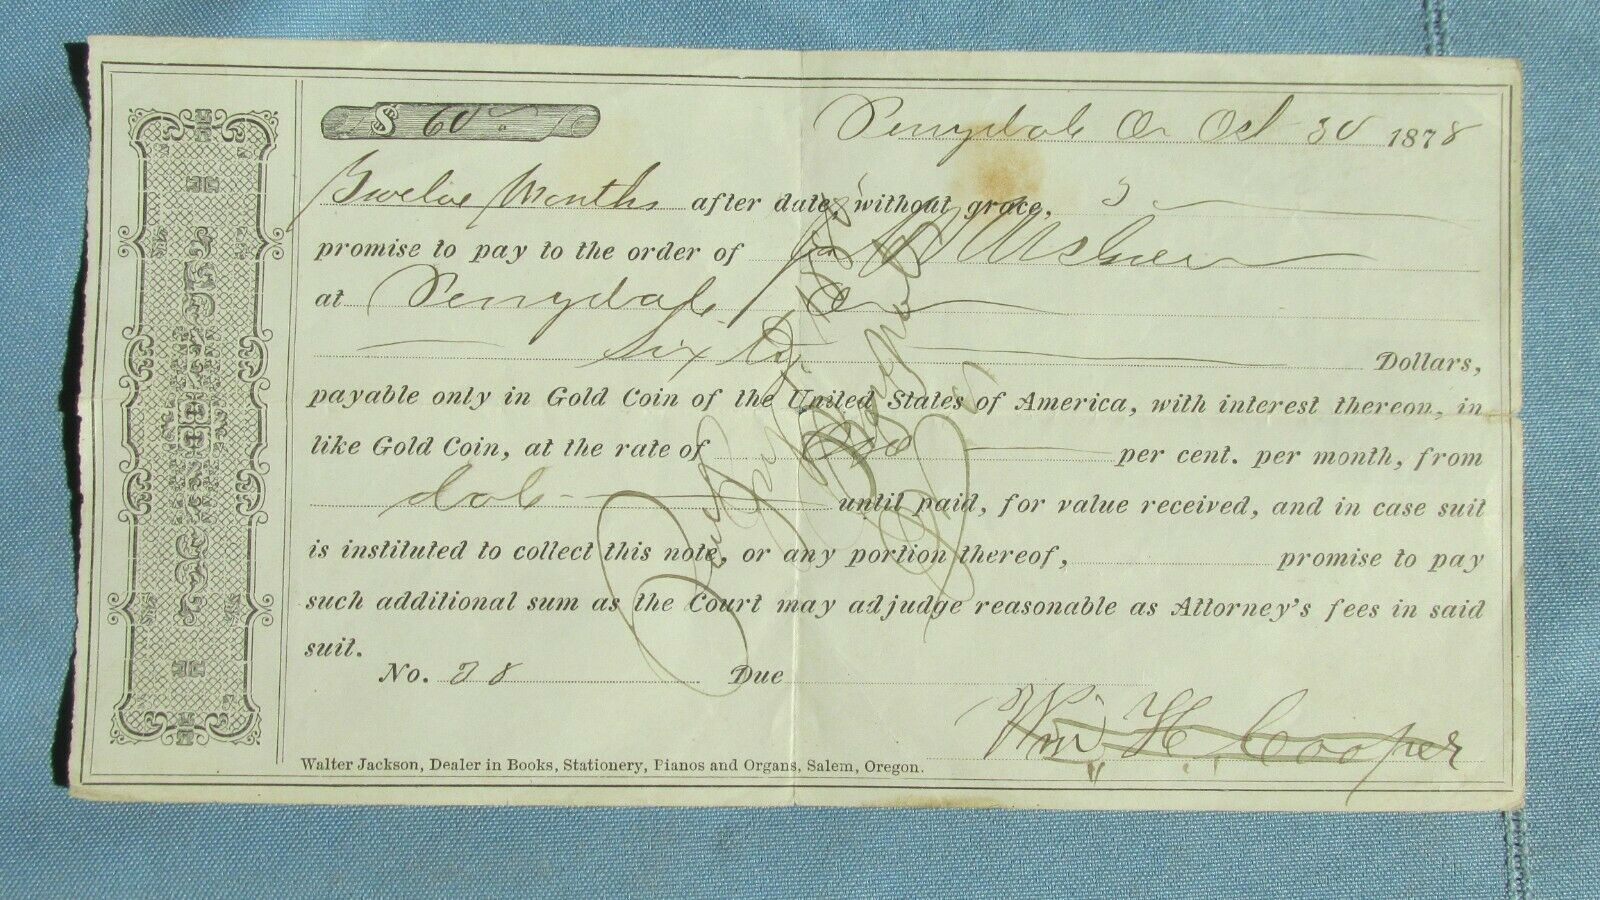 $ 60
Perrydale Or Oct 30 1878
Twelve Months after date, without grace, I
promise to pay to the order of
at Perrydale Or
Sixty Dollars,
payable only in Gold Coin of the United States of America, with interest thereon, in
like Gold Coin, at the rate of One per cent. per month, from
date until paid, for value received, and in case suit
is instituted to collect this note, or any portion thereof, promise to pay
such additional sum as the Court may adjudge reasonable as Attorney's fees in said
suit.
No. 28 Due
Wm H Cooper
Walter Jackson, Dealer in Books, Stationery, Pianos and Organs, Salem, Oregon.